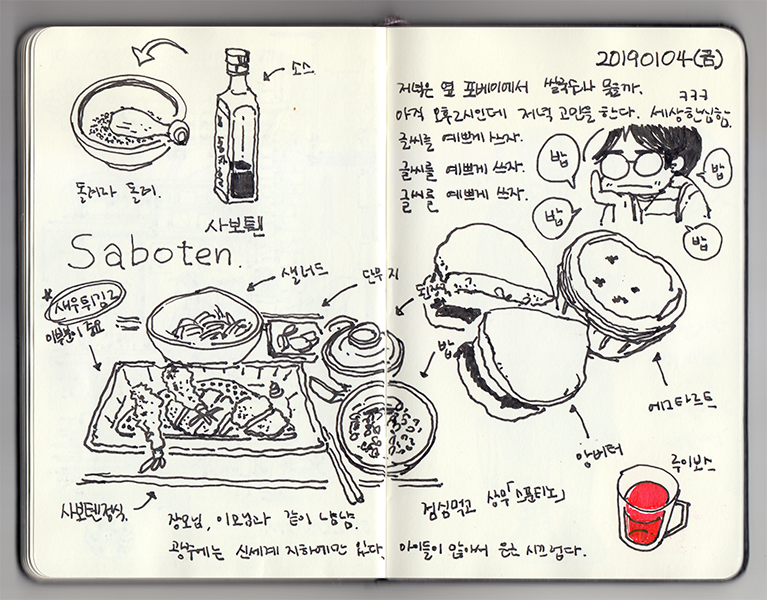 소스
돌려라 돌려.
사보텐
Saboten.
샐러드
단무지
새우튀김2
이부분이 중요
된장국
밥
사보텐정식.
장모님, 이모님과 같이 냠냠.
광주에는 신세계 지하에만 있다. 아이들이 많아서 은근 시끄럽다.
20190104(금)
저녁은 옆 포베이에서 쌀국수나 먹을까.
ㅋㅋㅋ
아직 오후2시인데 저녁 고민을 한다. 세상한심함.
글씨를 예쁘게 쓰자.
글씨를 예쁘게 쓰자.
글씨를 예쁘게 쓰자.
밥
밥
밥
밥
에그타르트
앙버터
루이보스
점심먹고 상무「스폰티노」